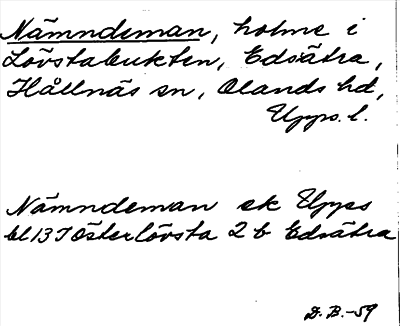 Nämndeman, holme i
Lövstabukten, Edsätra,
Hållnäs sn, Olands hd,
Upps. l.
Nämndeman ek Upps
bl 13 J Österlövsta 2 b Edsätra
D. B. -59